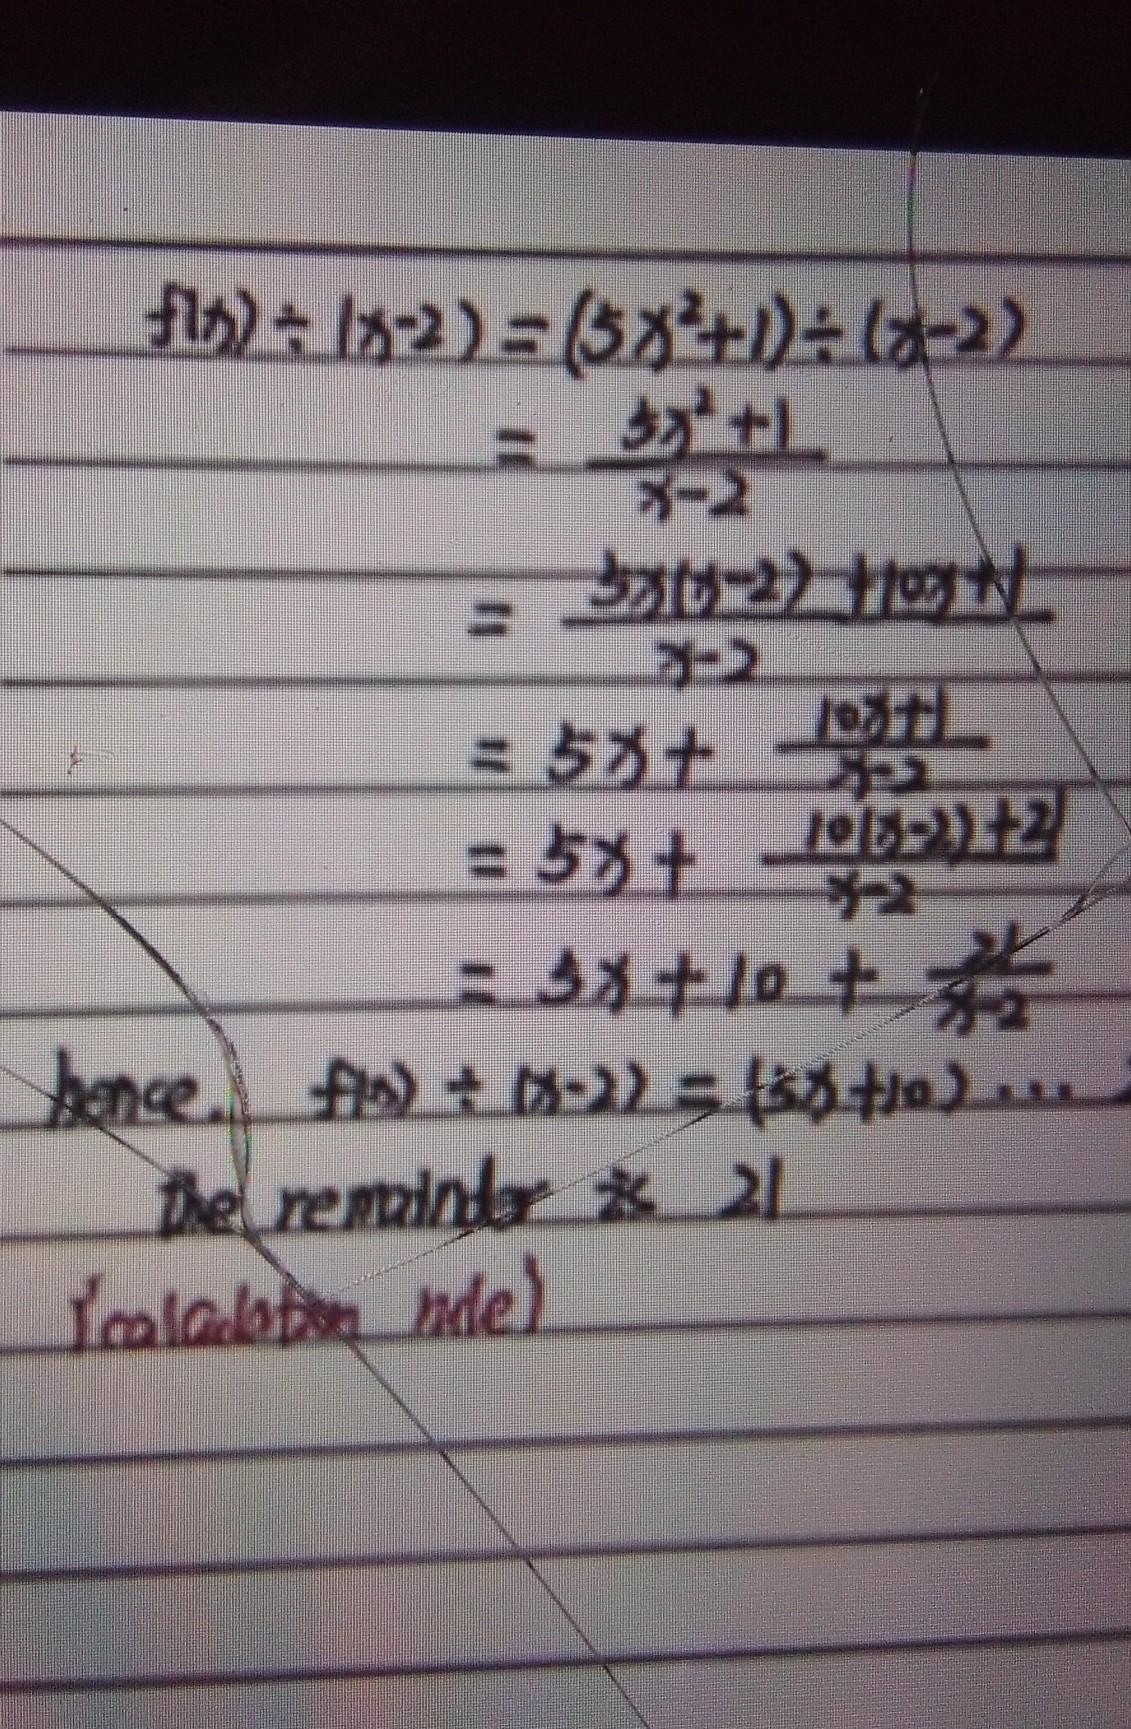 f(x) ÷ (x-2) = (5x²+1) ÷ (x-2)
= 5x²+1 / x-2
= 5x(x-2) +10x+1 / x-2
= 5x + 10x+1 / x-2
= 5x + 10(x-2)+21 / x-2
= 5x + 10 + 21 / x-2
hence. f(x) ÷ (x-2) = (5x+10) ...
The remainder is 21
(calculation